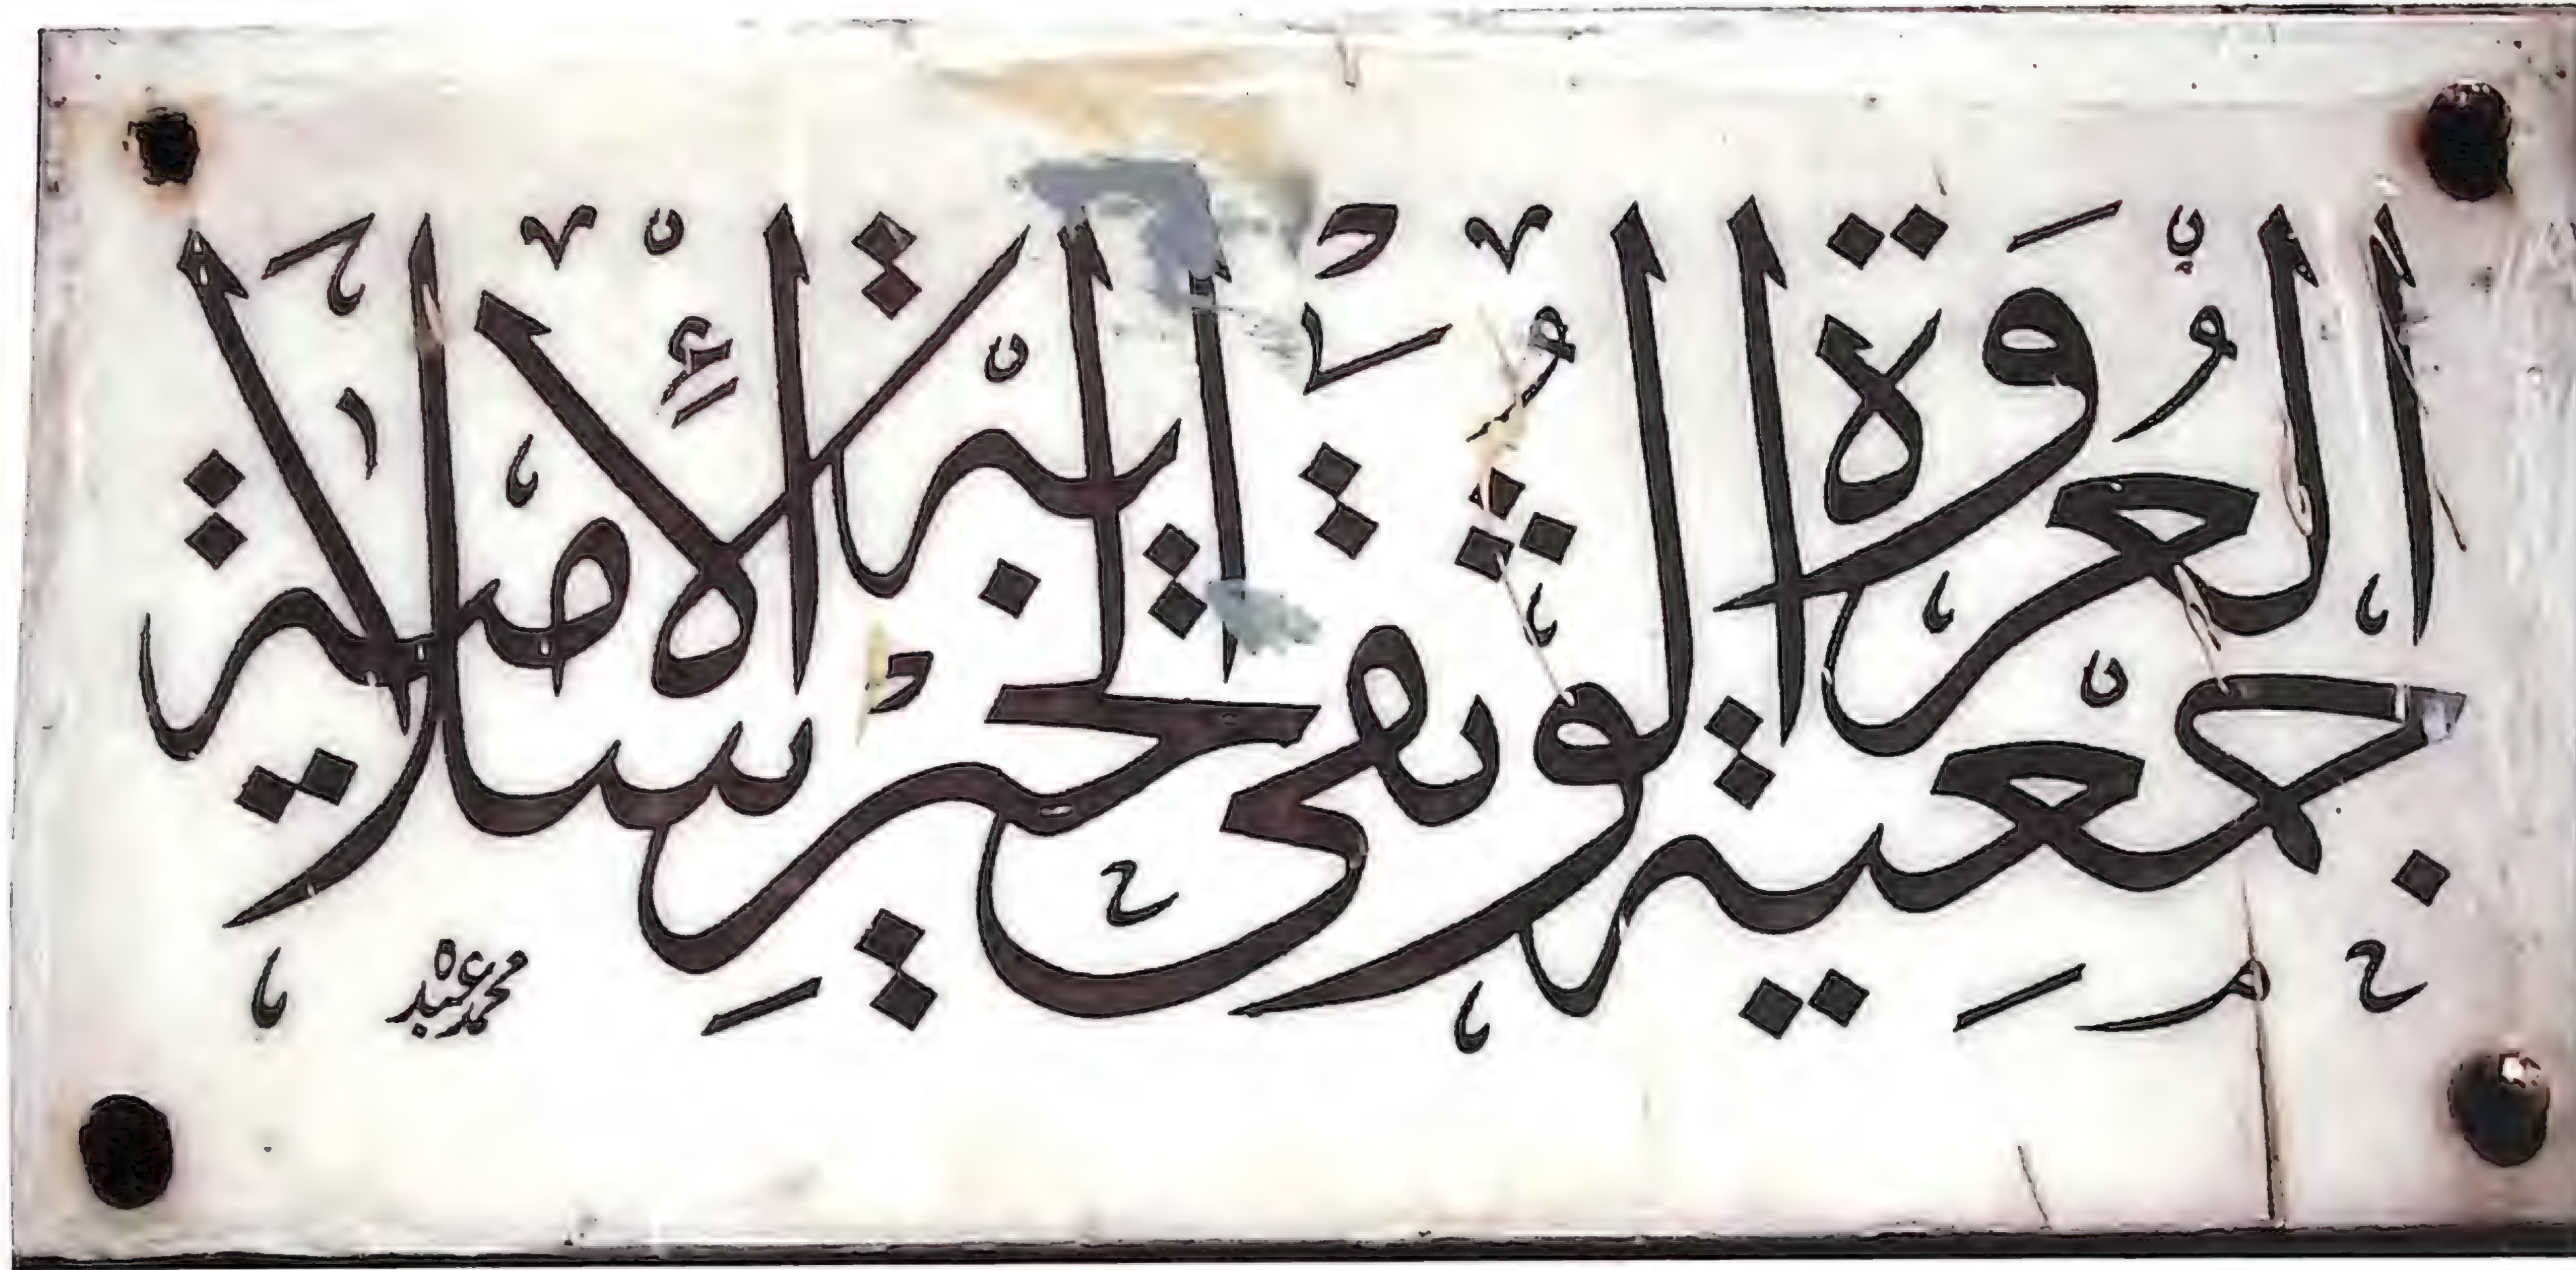 جمعية العروة الوثقى الخيرية الإسلامية الأصلية
محمد عبده